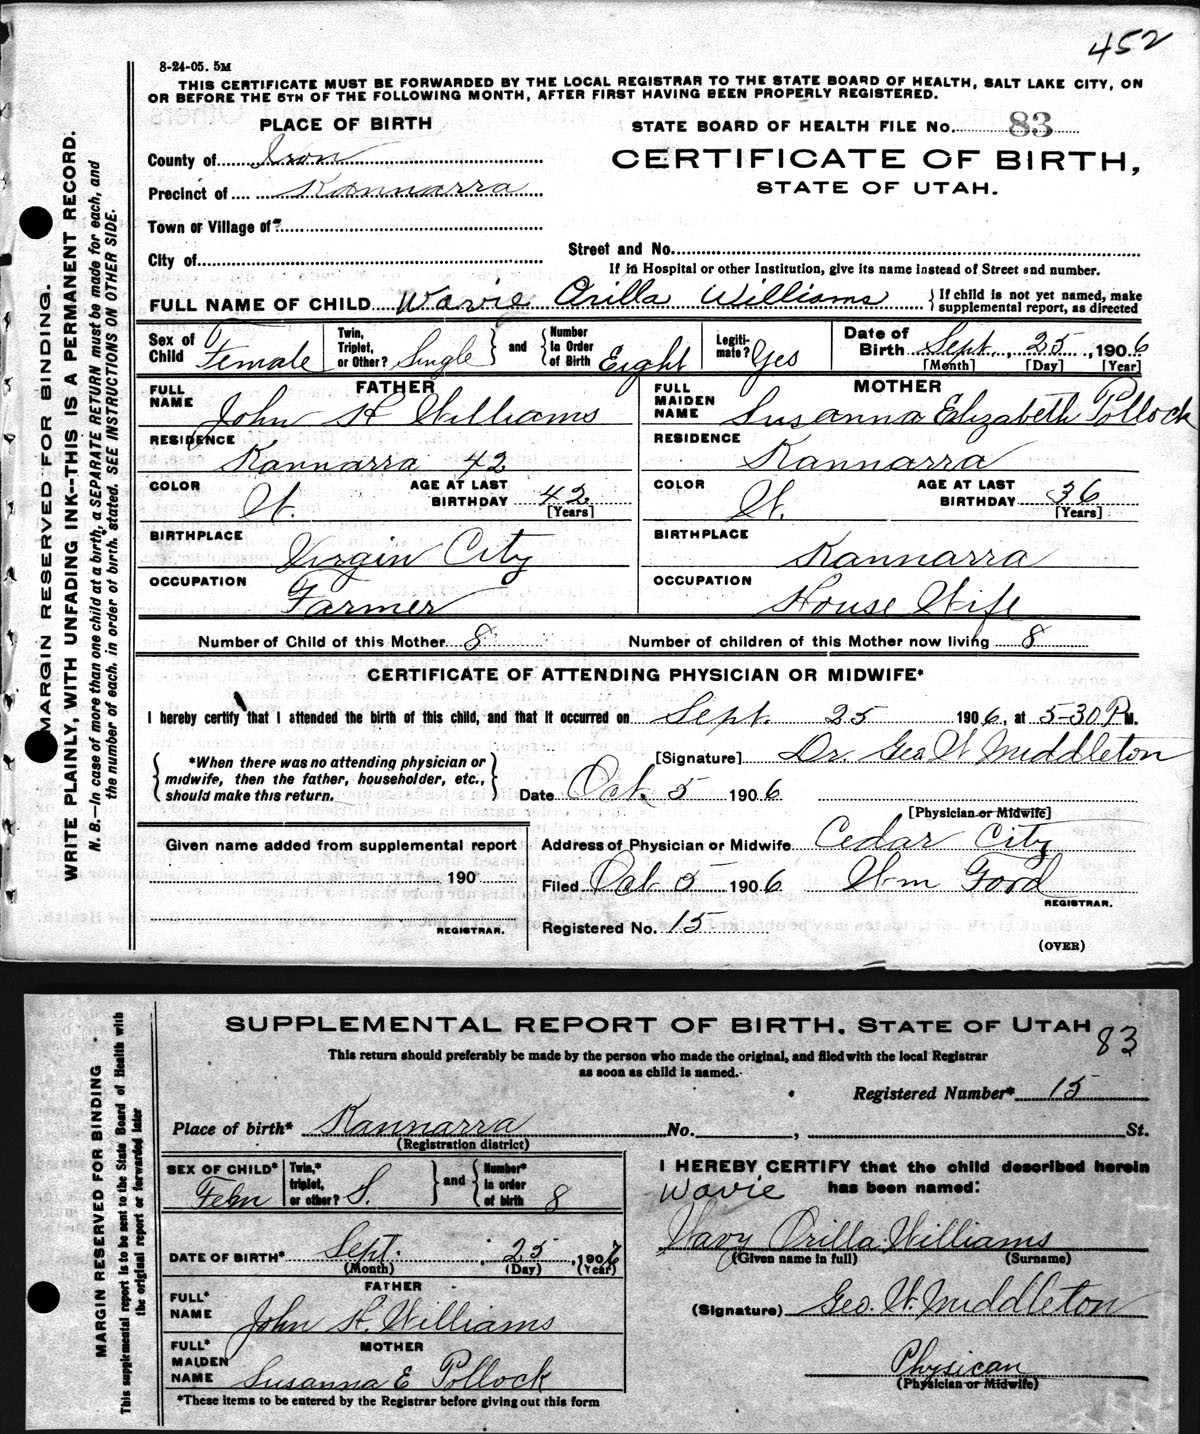 452
8-24-05. 5M
THIS CERTIFICATE MUST BE FORWARDED BY THE LOCAL REGISTRAR TO THE STATE BOARD OF HEALTH, SALT LAKE CITY, ON
OR BEFORE THE 5TH OF THE FOLLOWING MONTH, AFTER FIRST HAVING BEEN PROPERLY REGISTERED.
PLACE OF BIRTH
STATE BOARD OF HEALTH FILE No. 83
County of Iron
CERTIFICATE OF BIRTH,
Precinct of Kannarra
STATE OF UTAH.
Town or Village of
Street and No.
City of
If in Hospital or other Institution, give its name instead of Street and number.
FULL NAME OF CHILD Wavie Orilla Williams { If child is not yet named, make
supplemental report, as directed
Sex of Child Female Twin, Triplet, or Other? Single } and { Number In Order of Birth Eight Legiti-mate? Yes Date of Birth Sept. 25, 1906
[Month] [Day] [Year]
FATHER MOTHER
FULL NAME John H Williams FULL MAIDEN NAME Susanna Elizabeth Pollock
RESIDENCE Kannarra 42 RESIDENCE Kannarra
COLOR W. AGE AT LAST BIRTHDAY 42 [Years] COLOR W. AGE AT LAST BIRTHDAY 36 [Years]
BIRTHPLACE Virgin City BIRTHPLACE Kannarra
OCCUPATION Farmer OCCUPATION House Wife
Number of Child of this Mother 8 Number of children of this Mother now living 8
CERTIFICATE OF ATTENDING PHYSICIAN OR MIDWIFE*
I hereby certify that I attended the birth of this child, and that it occurred on Sept 25 1906, at 5-30 P M.
{ *When there was no attending physician or
midwife, then the father, householder, etc.,
should make this return. }
[Signature] Dr. Geo W Middleton
Date Oct. 5 1906
[Physician or Midwife]
Given name added from supplemental report
190
REGISTRAR.
Address of Physician or Midwife Cedar City
Filed Oct 5 1906 Wm Ford
REGISTRAR.
Registered No. 15
(OVER)
MARGIN RESERVED FOR BINDING.
WRITE PLAINLY, WITH UNFADING INK--THIS IS A PERMANENT RECORD.
N. B.—In case of more than one child at a birth, a SEPARATE RETURN must be made for each, and
the number of each, in order of birth, stated. SEE INSTRUCTIONS ON OTHER SIDE.
SUPPLEMENTAL REPORT OF BIRTH, STATE OF UTAH
83
This return should preferably be made by the person who made the original, and filed with the local Registrar
as soon as child is named.
Registered Number* 15
Place of birth* Kannarra No. , St.
(Registration district)
SEX OF CHILD* Fem Twin,* triplet, or other? S. } and { Number* in order of birth 8
I HEREBY CERTIFY that the child described herein
Wavie has been named:
Wavy Orilla Williams
(Given name in full) (Surname)
DATE OF BIRTH* Sept. 25, 1906
(Month) (Day) (Year)
FATHER
FULL* NAME John H. Williams
(Signature) Geo. W. Middleton
MOTHER
FULL* MAIDEN NAME Susanna E Pollock
Physican
(Physician or Midwife)
*These items to be entered by the Registrar before giving out this form
MARGIN RESERVED FOR BINDING
This supplemental report is to be sent to the State Board of Health with
the original report or forwarded later